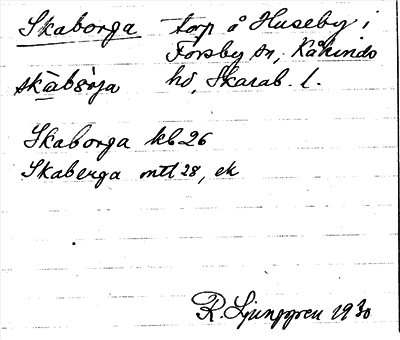 Skaborga torp å Huseby i
Forsby sn, Kåkinds
skàbårja hd, Skarab. l.
Skaborga kb 26
Skaberga mtl 28, ek
R. Ljunggren 1930